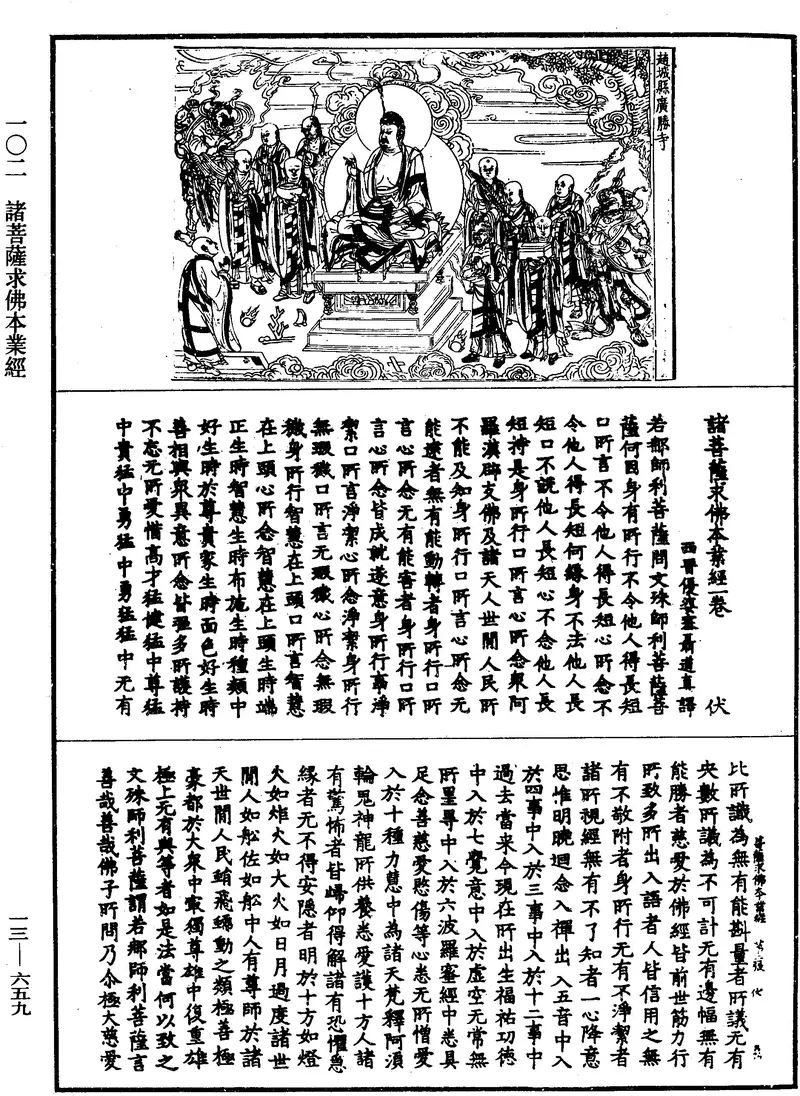 一〇二　諸菩薩求佛本業經
一三—六五九
趙城縣廣勝寺
諸菩薩求佛本業經一卷　伏
西晉優婆塞聶道真譯
若那師利菩薩問文殊師利菩薩菩
薩何因身有所行不令他人得長短
口所言不令他人得長短心所念不
令他人得長短何緣身不法他人長
短口不説他人長短心不念他人長
短持是身所行口所言心所念衆阿
羅漢辟支佛及諸天人世間人民所
不能及知身所行口所言心所念无
能逮者無有能動轉者身所行口所
言心所念无有能害者身所行口所
言心所念皆成就遂意身所行事淨
絜口所言淨絜心所念淨絜身所行
無瑕穢口所言无瑕穢心所念無瑕
穢身所行智慧在上頭口所言智慧
在上頭心所念智慧在上頭生時端
正生時智慧生時布施生時種類中
好生時於尊貴家生時面色好生時
善相與衆異意所念皆强多所護持
不忘无所愛憎高才猛健猛中尊猛
中貴猛中勇猛中勇猛猛中无有
比所識為無有能斟量者所議无有
央數所議為不可計无有邊幅無有
能勝者慈愛於佛經皆前世筋力行
所致多所出入語者人皆信用之無
有不敬附者身所行无有不淨絜者
諸所視經無有不了知者一心降意
思惟明曉迴念入禪出入五音中入
於四事中入於三事中入於十二事中
過去當來今現在所出生福祐功德
中入於七覺意中入於虛空无常無
所罣㝵中入於六波羅蜜經中悉具
足念善慈愛愍傷等心悉无所憎愛
入於十種力慧中為諸天梵釋阿須
輪鬼神龍所供養悉愛護十方人諸
有驚怖者皆歸仰得解諸有恐懼急
緣者无不得安隱者明於十方如燈
火如炬火如大火如日月過度諸世
間人如舩佐如舩中人有尊師於諸
天世間人民蜎飛蠕動之類極善極
豪都於大衆中㝡獨尊雄中復重雄
極上无有與等者如是法當何以致之
文殊師利菩薩謂若那師利菩薩言
善哉善哉佛子所問乃尒極大慈愛
菩薩求佛本業經　伏